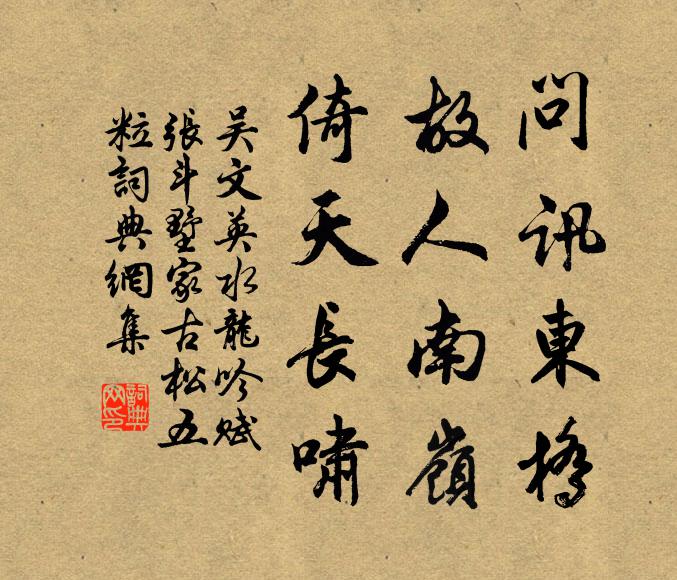 問訊東橋
故人南嶺
倚天長嘯
吴文英水龍吟賦
張斗墅家古松五
粒詞典網集
詞典
网印